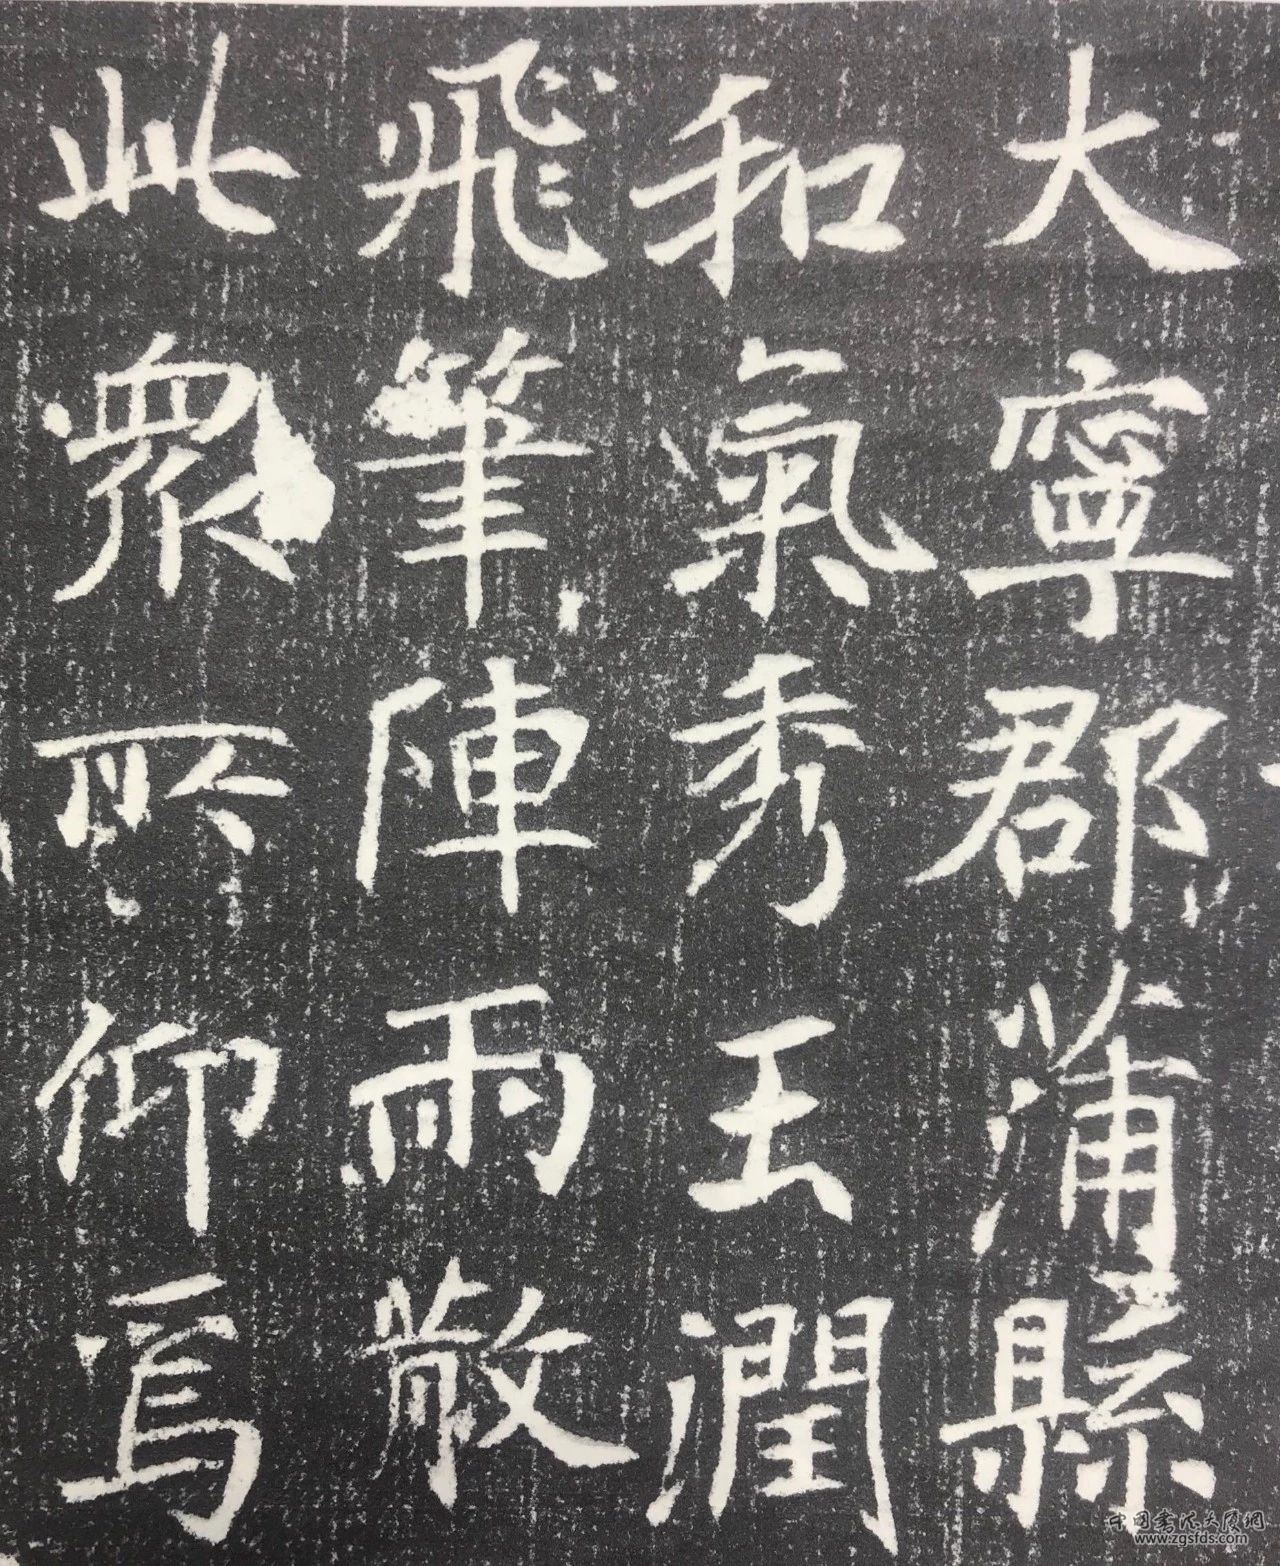 大寧郡蒲縣
和氣秀玉潤
飛筆陣雨散
此眾所仰焉
中国书法大厦网
www.zgsfds.com